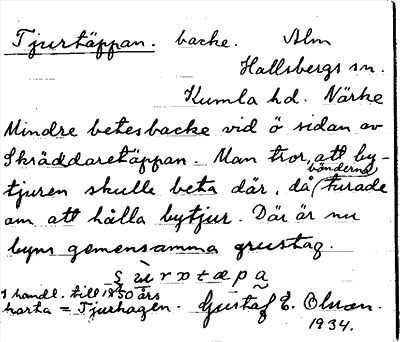 Tjurtäppan. backe. Alm
Hallsbergs sn.
Kumla hd. Närke
Mindre betesbacke vid ö sidan av
Skräddaretäppan. Man tror, att by-
tjuren skulle beta där, då bönderna turade
om att hålla bytjur. Där är nu
byns gemensamma grustag.
I handl. till 1850 års
karta = Tjurhagen. Gustaf E. Olsson.
1934.